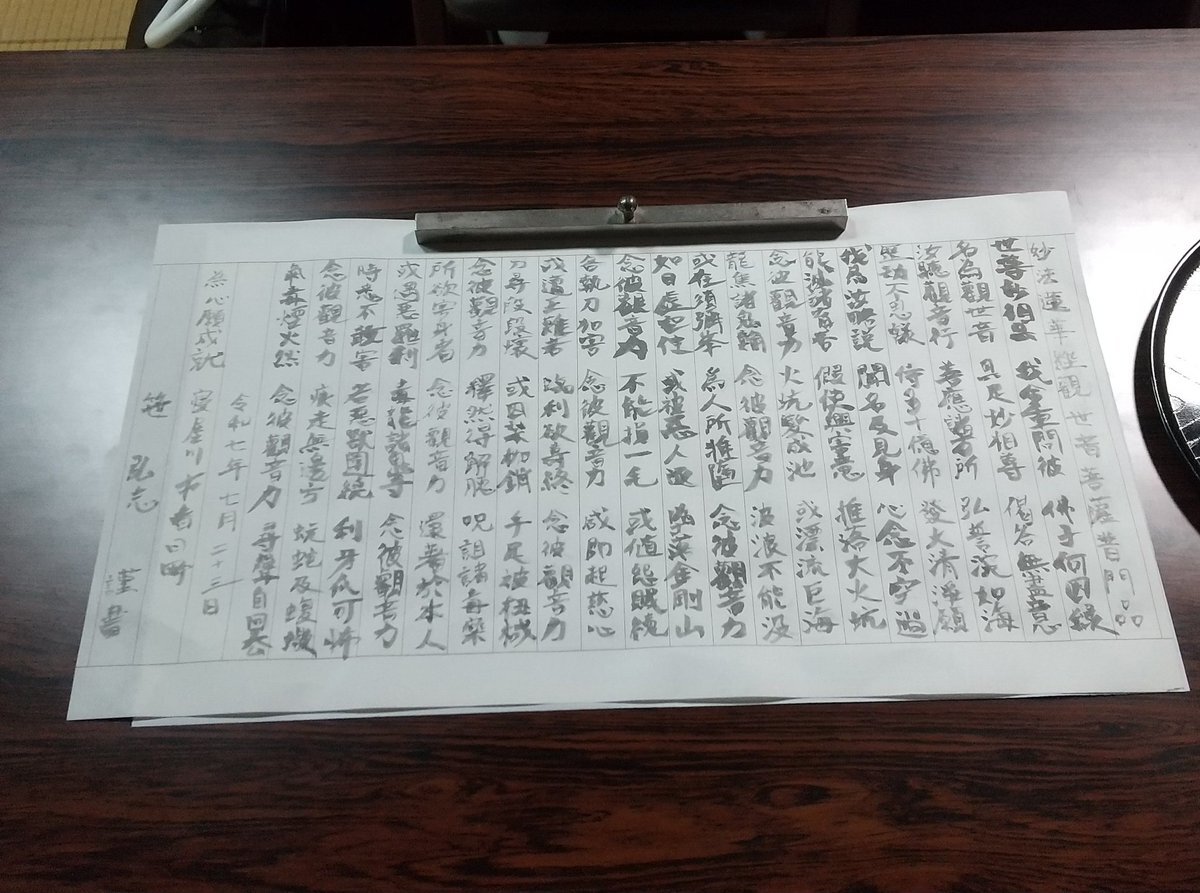 妙法蓮華經觀世音菩薩普門品
世尊妙相具 我今重問彼 佛子何因縁
名為觀世音 具足妙相尊 偈答無盡意
汝聴觀音行 善應諸方所 弘誓深如海
歴劫不思議 侍多千億佛 發大清淨願
我為汝略説 聞名及見身 心念不空過
能滅諸有苦 假使興害意 推落大火坑
念彼觀音力 火坑變成池 或漂流巨海
龍魚諸鬼難 念彼觀音力 波浪不能没
或在須彌峯 為人所推堕 念彼觀音力
如日虚空住 或被惡人逐 堕落金剛山
念彼觀音力 不能損一毛 或値怨賊繞
各執刀加害 念彼觀音力 咸即起慈心
或遭王難苦 臨刑欲壽終 念彼觀音力
刀尋段段壊 或囚禁枷鎖 手足被杻械
念彼觀音力 釋然得解脱 呪詛諸毒藥
所欲害身者 念彼觀音力 還著於本人
或遇惡羅刹 毒龍諸鬼等 念彼觀音力
時悉不敢害 若惡獸圍繞 利牙爪可怖
念彼觀音力 疾走無邊方 蚖蛇及蝮蠍
氣毒煙火然 念彼觀音力 尋聲自回去
令和七年 七月 二十三日
為心願成就
笹 弘志 謹書